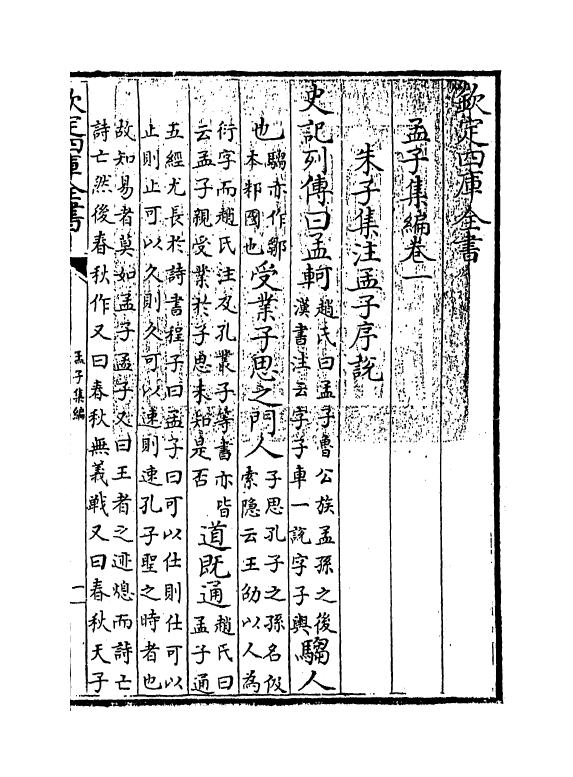 欽定四庫全書
孟子集編卷一
朱子集注孟子序說
史記列傳曰孟軻趙氏曰孟子魯公族孟孫之後漢書注云字子車一說字子輿騶人
也騶亦作鄒本邾國也受業子思之門人子思孔子之孫名伋索隠云王劭以人為
衍字而趙氏注及孔叢子等書亦皆云孟子親受業於子思未知是否道既通趙氏曰孟子通
五經尤長於詩書程子曰孟子曰可以仕則仕可以
止則止可以久則久可以速則速孔子聖之時者也
故知易者莫如孟子孟子又曰王者之迹熄而詩亡
詩亡然後春秋作又曰春秋無義戰又曰春秋天子
欽定四庫全書
孟子集編
一